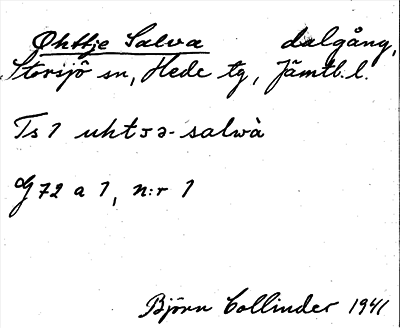 Øhttje Salva dalgång,
Storsjö sn, Hede tg, Jämtl. l.
Ts 1 uhtɜə-salwà
G 72 a 1, n:r 1
Björn Collinder 1941